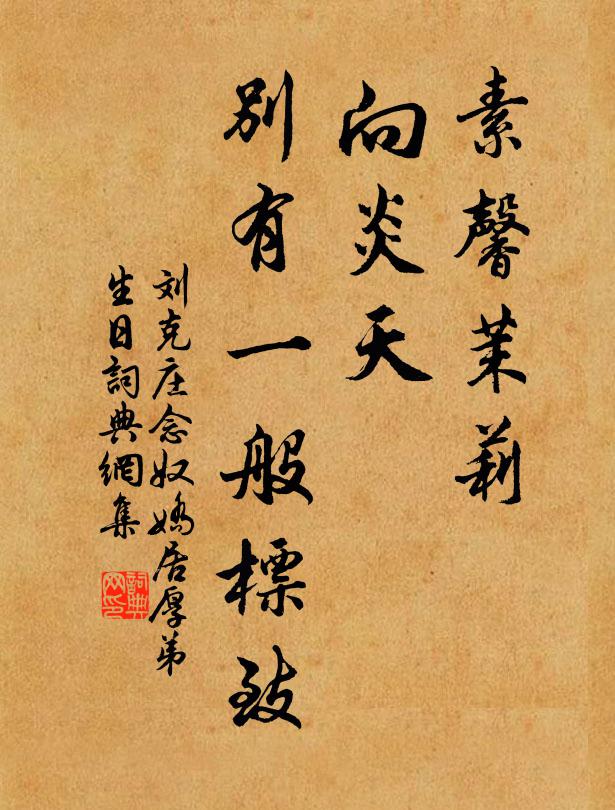 素馨茉莉
向炎天
別有一般標致
刘克庄念奴嬌居厚弟
生日詞典網集
詞典
网印